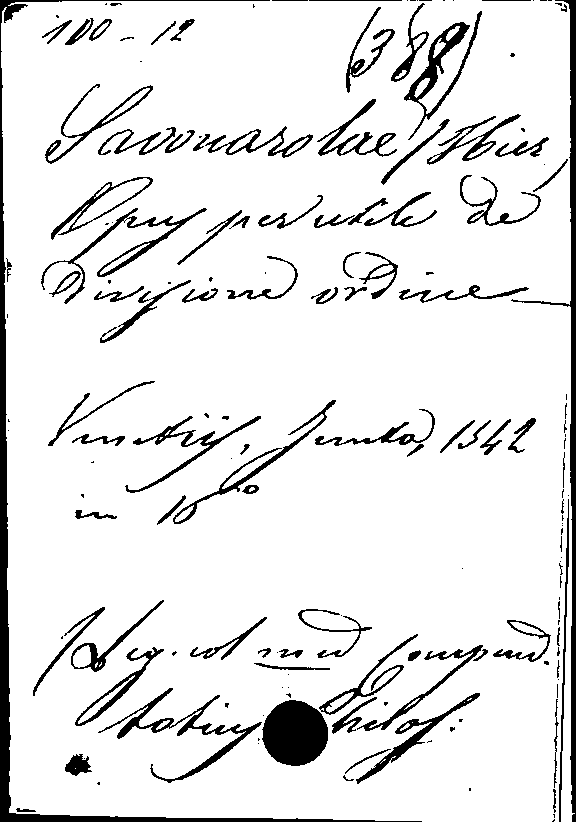 100-12 (388)
Savonarolae, Hier,
Opus perutile de
Divisione ordine
Venetiis, Junta, 1542
in 16°
(Leg. col med Compend.
totius Philos: